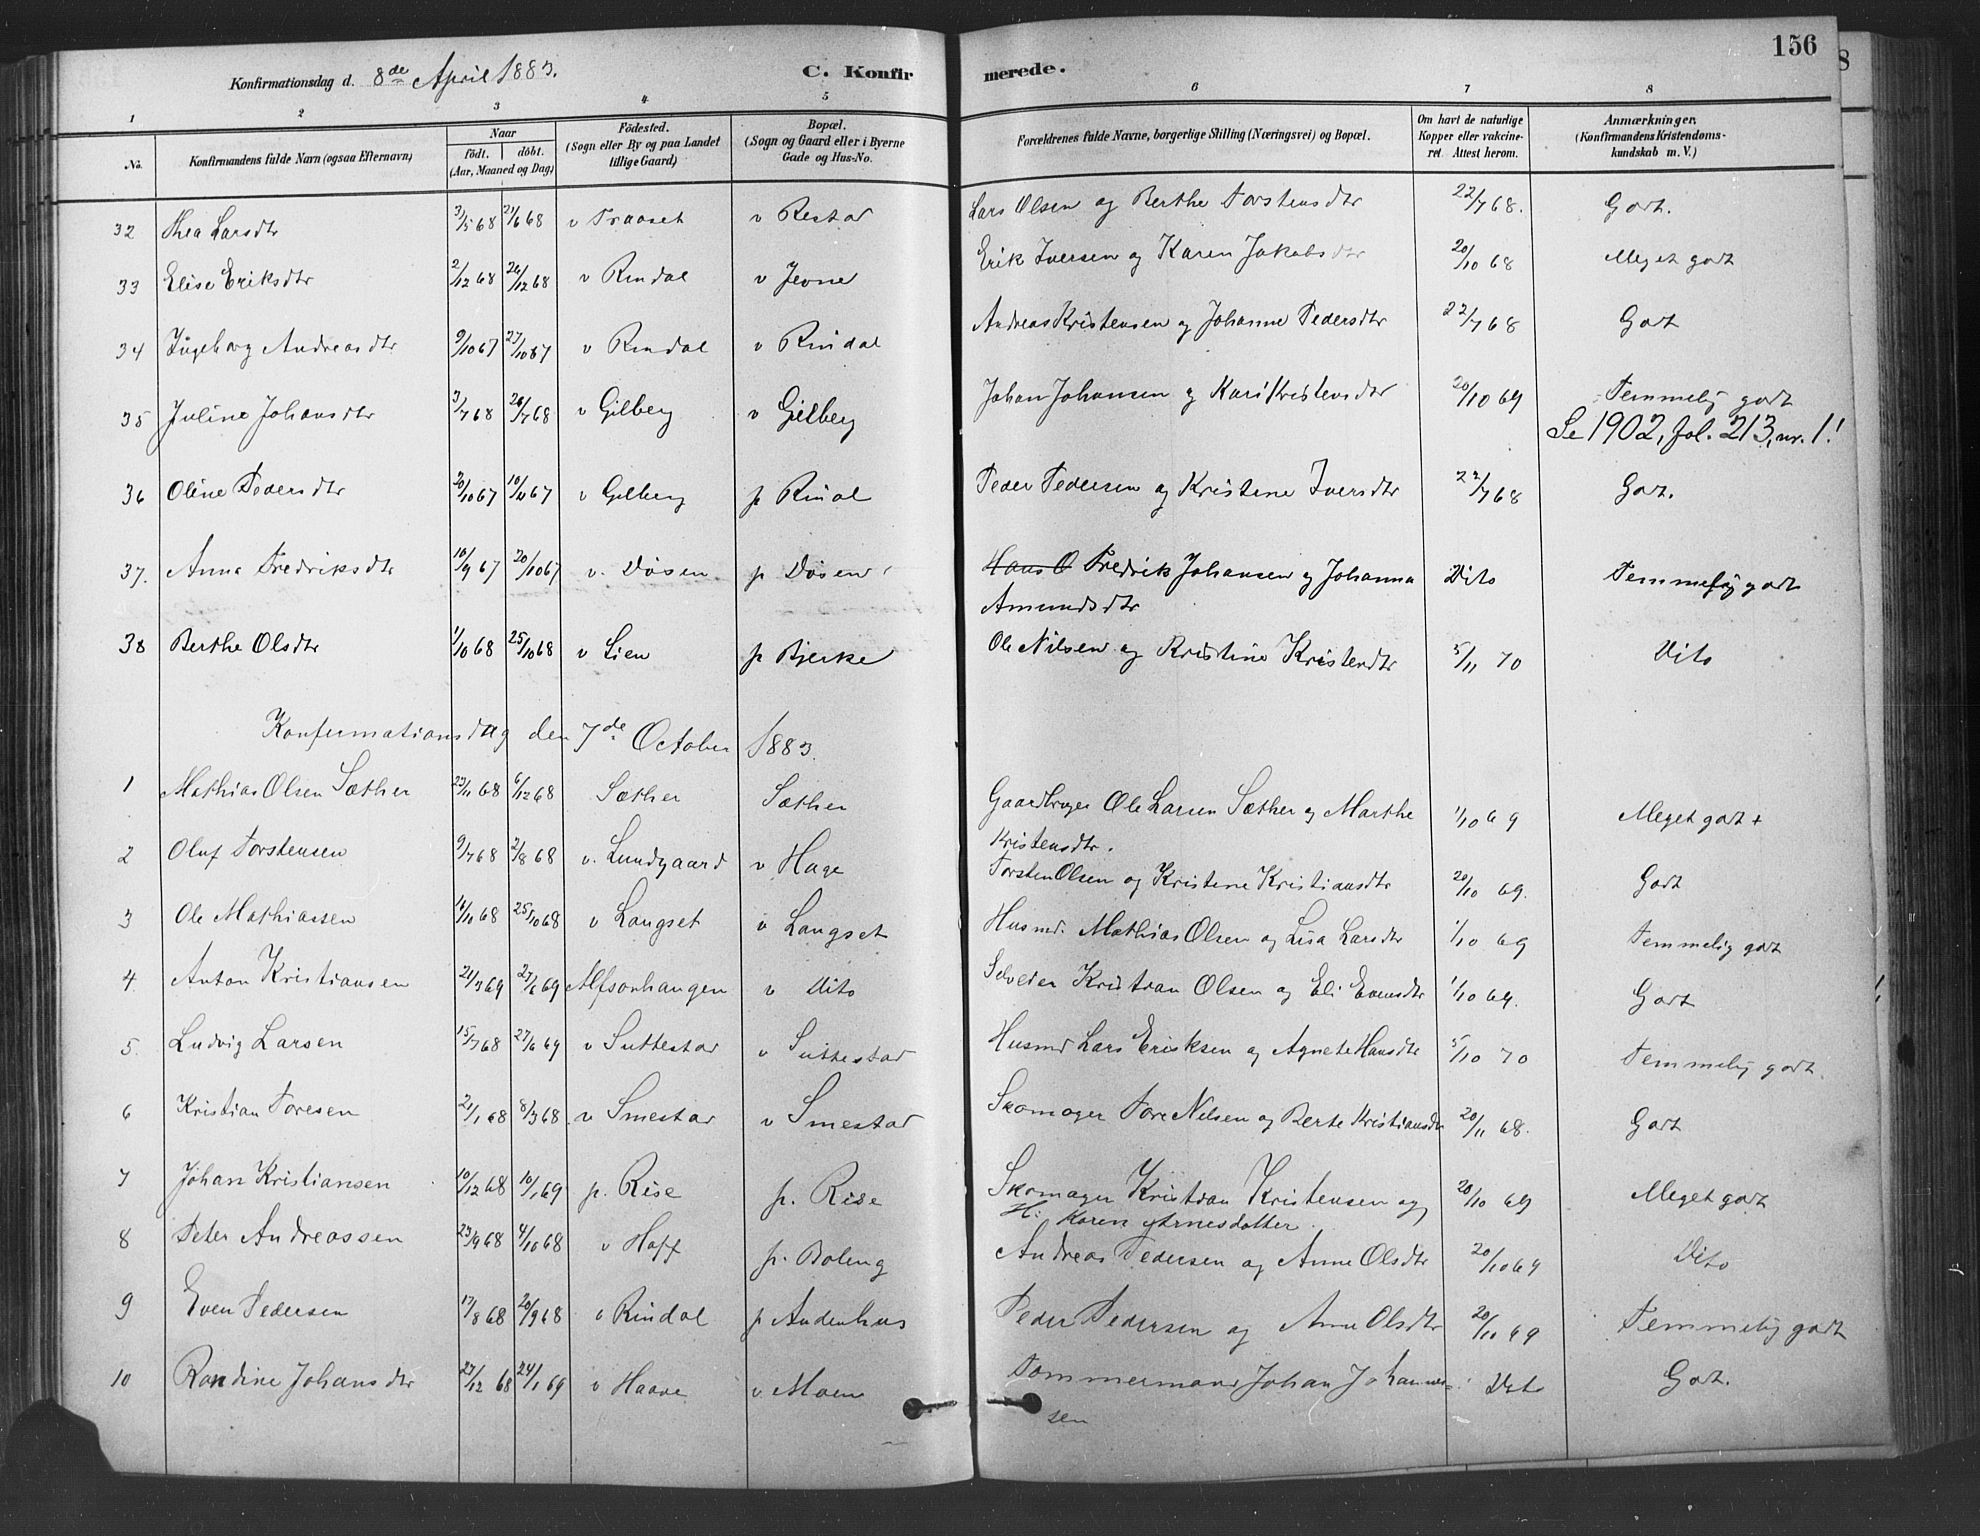 156
Konfirmationsdag d. 8de April 1883. C. Konfirmerede.
1 2 3 4 5 6 7 8
No. Konfirmandens fulde Navn (ogsaa Efternavn) Naar födt. döbt. (Aar, Maaned og Dag) Födested. (Sogn eller By og paa Landet tillige Gaard) Bopæl. (Sogn og Gaard eller i Byerne Gade og Hus-No. Forældrenes fulde Navne, borgerlige Stilling (Næringsvei) og Bopæl. Om havt de naturlige Kopper eller vakcineret. Attest herom. Anmærkninger. (Konfirmandens Kristendomskundskab m. V.)
32 Thea Larsdtr 3/5 68 21/6 68 v Traaset v Restad Lars Olsen og Berthe Torstensdtr 22/7 68. Godt.
33 Elise Eriksdtr 2/12 68 26/12 68 v Rindal v Jevne Erik Iversen og Karen Jakobsdtr 20/10 68 Meget godt
34 Ingeborg Andreasdtr 9/10 67 27/10 67 v Rindal v Rindal Andreas Kristensen og Johanne Pedersdtr 22/7 68 Godt
35 Juline Johansdtr 3/7 68 26/7 68 v Gilberg v Gilberg Johan Johansen og Kari Kristensdtr 20/10 69 Temmelig godt
Se 1902, fol. 213, nr. 1!
36 Oline Pedersdtr 20/10 67 10/11 67 v Gilberg p Rindal Peder Pedersen og Kristine Iversdtr 22/7 68 Godt.
37. Anna Fredriksdtr 10/9 67 20/10 67 v. Døsen p Døsen Hans O Fredrik Johansen og Johanna Dito Temmelig godt
Amundsdtr
38 Berthe Olsdtr 1/10 68 25/10 68 v Lien p Bjerke Ole Nilsen og Kristine Kristensdtr 5/11 70 Dito
Konfirmationsdag den 7de October 1883.
1 Mathias Olsen Sæther 23/11 68 6/12 68 Sæther Sæther Gaardbruger Ole Larsen Sæther og Marthe 1/10 69 Meget godt +
Kristensdtr.
2 Oluf Torstensen 9/7 68 2/8 68 v. Lundgaard v Hage Torsten Olsen og Kristine Kristiansdtr 20/10 69. Godt
3 Ole Mathiassen 16/10 68 25/10 68 v Langset v Langset Husmd. Mathias Olsen og Lisa Larsdtr 1/10 69 Temmelig godt
4 Anton Kristiansen 21/3 69 27/6 69 Alfsonhaugen v Dito Selveier Kristian Olsen og Eli Evensdtr 1/10 69. Godt
5. Ludvig Larsen 15/7 68 27/6 69 v Suttestad v Suttestad Husmd Lars Eriksen og Agnete Hansdtr 5/10 70 Temmelig godt.
6 Kristian Toresen 21/1 68 8/3 68 v Smestad v Smestad Skomager Tore Nilsen og Berte Kristiansdtr 20/11 68. Godt
7 Johan Kristiansen 10/12 68 10/1 69 p. Rise p. Rise Skomager Kristian Kristensen og 20/10 69 Meget godt
H: Karen Arnesdatter.
8 Peter Andreassen 23/9 68 4/10 68 v Hoff p. Boleng Andreas Pedersen og Anne Olsdtr 20/10 69 Dito
9 Even Pedersen 17/8 68 20/9 68 v Rindal p Audenhus Peder Pedersen og Anne Olsdtr 20/11 69 Temmelig godt
10 Randine Johansdtr 27/12 68 24/1 69 v Haave v Moen Tommermand Johan Johannes= Dito Godt.
sen